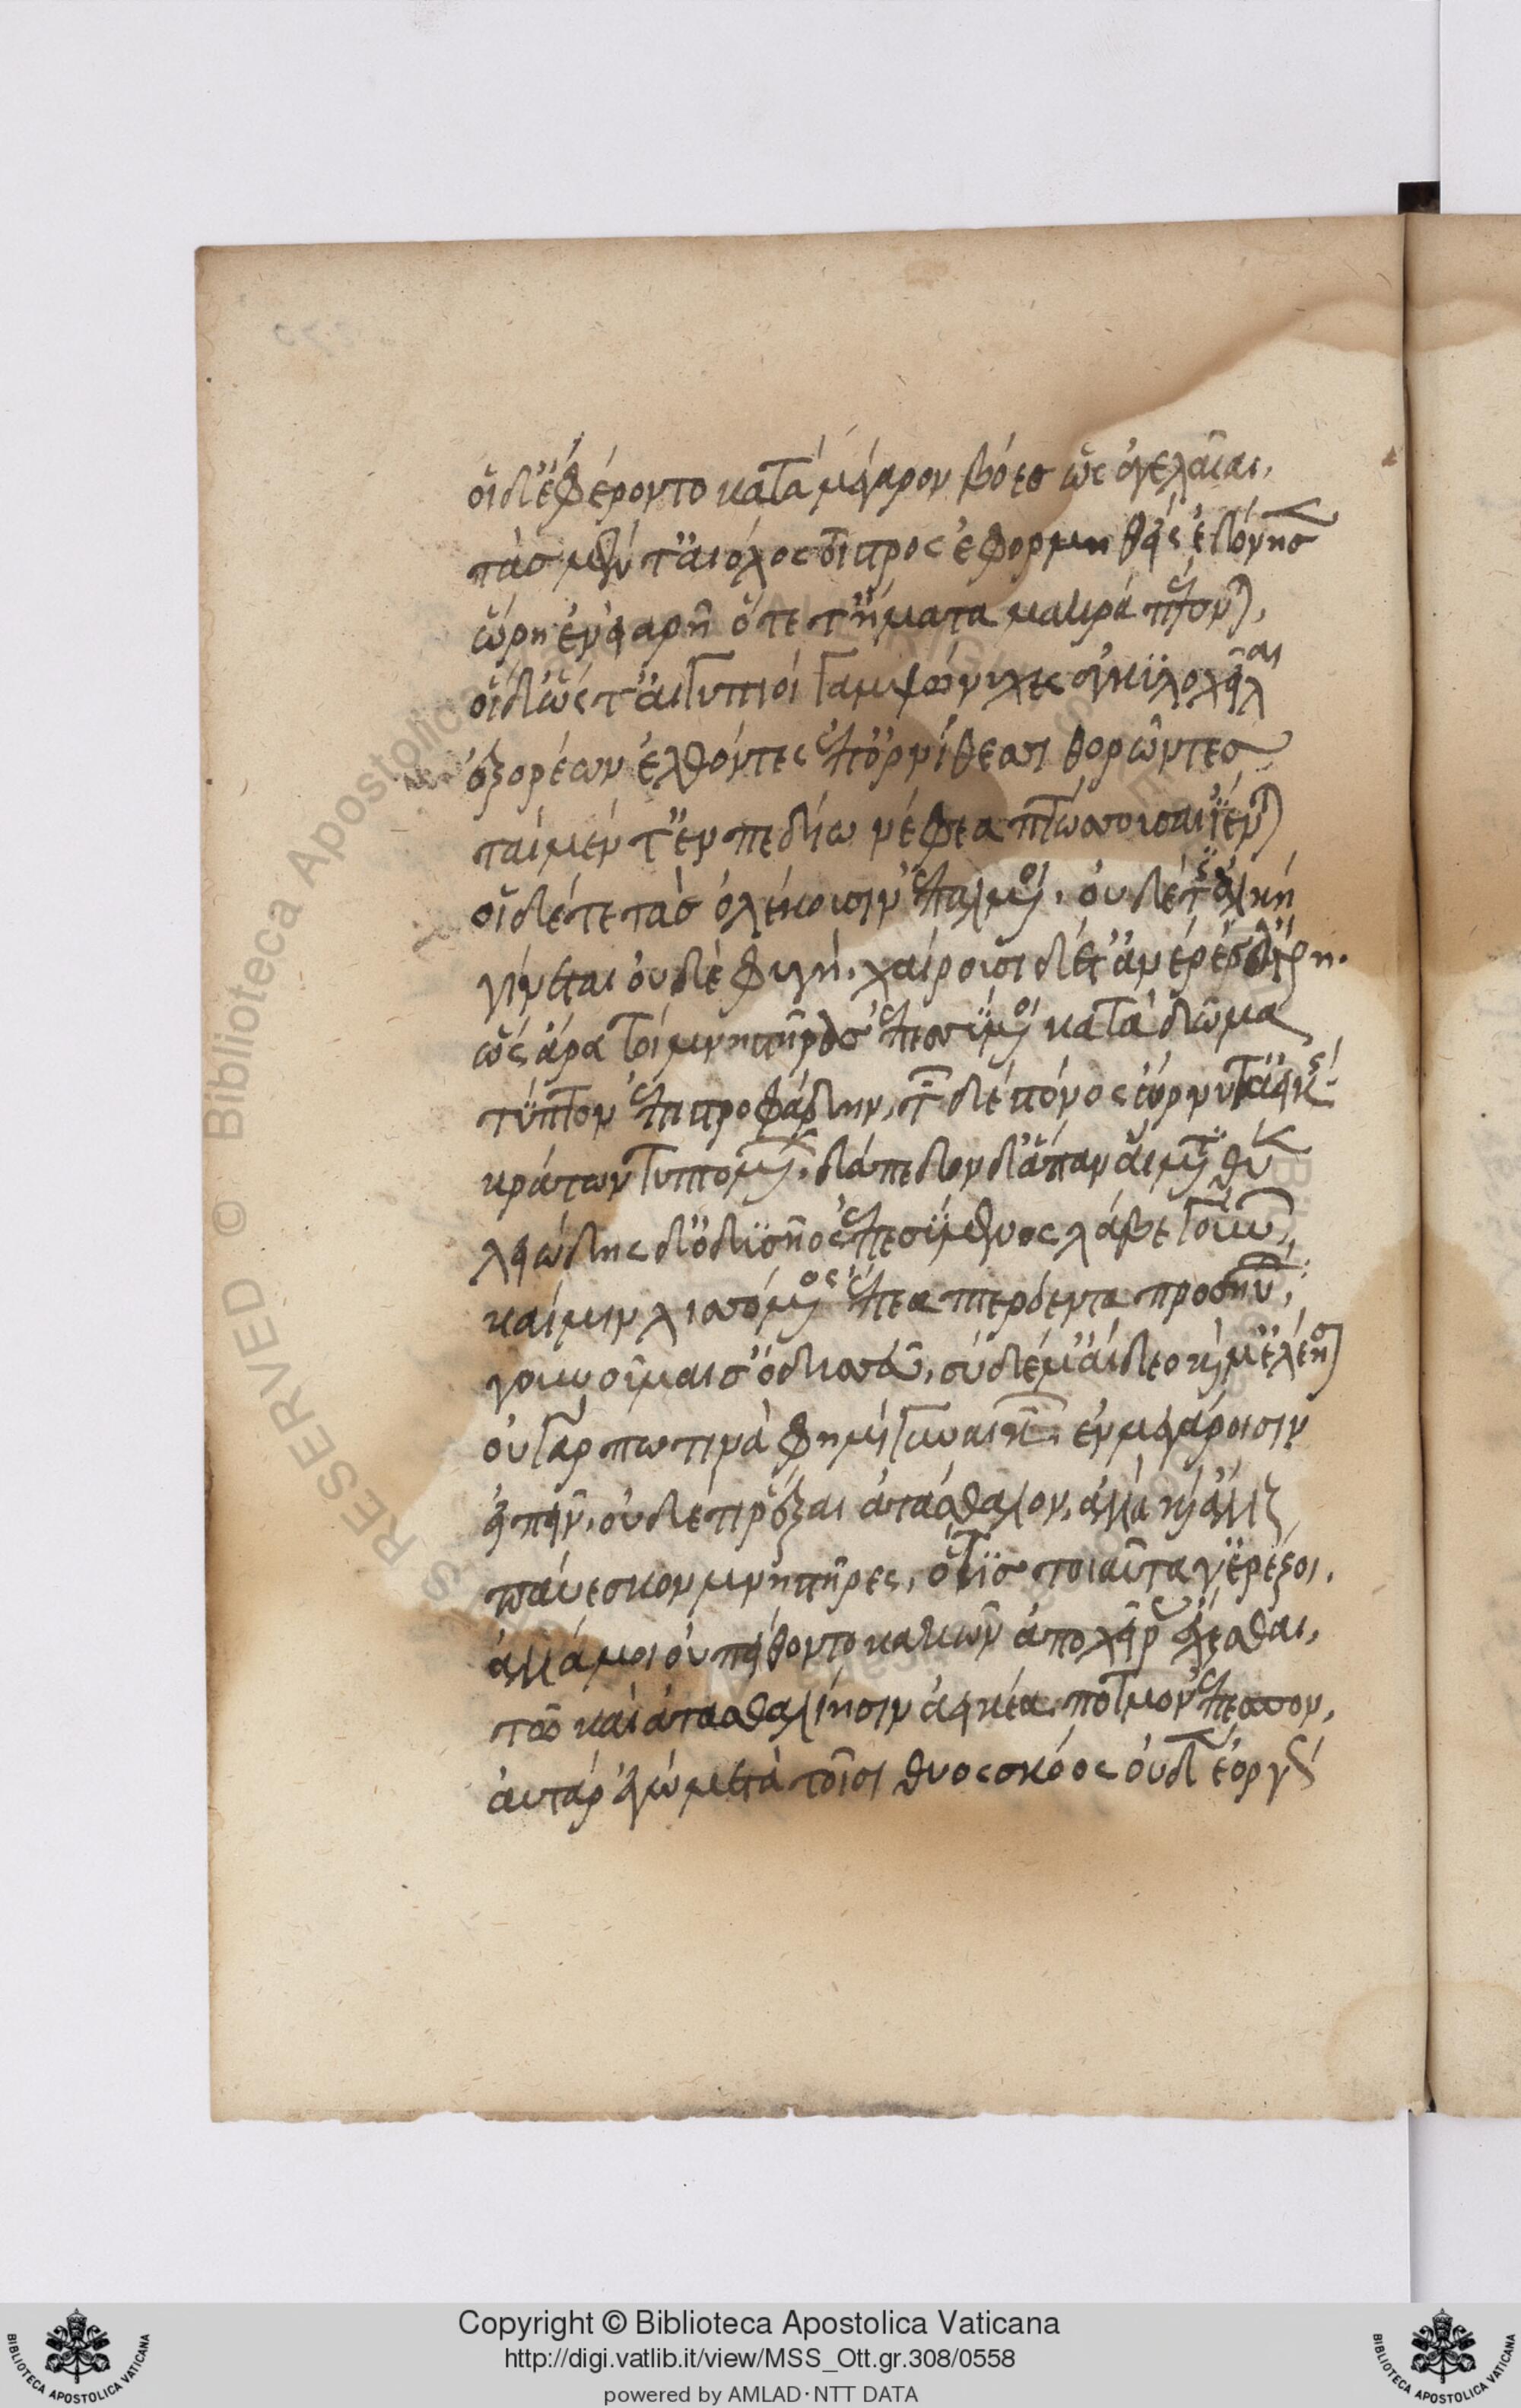 οἱ δ' ἐφέροντο κατὰ μέγαρον βόες ὣς ἀγελαῖαι.
τὰς μέν τ' αἰόλος οἶστρος ἐφορμηθεὶς ἐδόνησ
ὥρῃ ἐν εἰαρινῇ ὅτε τ' ἤματα μακρὰ πέλονται,
οἱ δ' ὥς τ' αἰγυπιοὶ γαμψώνυχες ἀγκυλοχεῖλαι
ἐξ ὀρέων ἐλθόντες ἐπ' ὀρνίθεσσι θορῶντες
ταὶ μέν τ' ἐν πεδίω νέφεα πτώσσουσαι ἵενται
οἱ δέ τε τὰς ὀλέκουσιν ἐπάλμενοι. οὐδέ τις ἀλκὴ
γίνεται οὐδὲ φυγή. χαίρουσι δέ τ' ἀνέρες ἄγρη.
ὣς ἄρα τοὶ μνηστῆρας ἐπεσσύμενοι κατὰ δῶμα
τύπτον ἐπιστροφάδην, τῶν δὲ στόνος ὤρνυτ' ἀεικής
κράτων τυπτομένων. δάπεδον δ' ἅπαν αἵματι θῦε
λειώδης δ' ὀδυσῆος ἐπεσσύμενος λάβε γούνων,
καί μιν λισσόμενος ἔπεα πτερόεντα προσηύδα,
γουνοῦμαι σ' ὀδυσσεῦ, σὺ δέ μ' αἴδεο καί μ' ἐλέησον
οὐ γάρ πώ τινά φημι γυναικῶν ἐν μεγάροισιν
εἰπεῖν. οὐδέ τι ῥέξαι ἀτάσθαλον, ἀλλὰ καὶ ἄλλους
παύεσκον μνηστῆρες, ὅτις τοιαῦτά γε ῥέζοι.
ἀλλά μοι οὐ πείθοντο κακῶν ἀπὸ χεῖρας ἔχεσθαι,
τῶ καὶ ἀτασθαλίησιν ἀεικέα πότμον ἐπέσπον,
αὐτὰρ ἐγὼ μετὰ τοῖσι θυοσκόος οὐδὲν ἐοργὼς
Copyright © Biblioteca Apostolica Vaticana
http://digi.vatlib.it/view/MSS_Ott.gr.308/0558
powered by AMLAD·NTT DATA